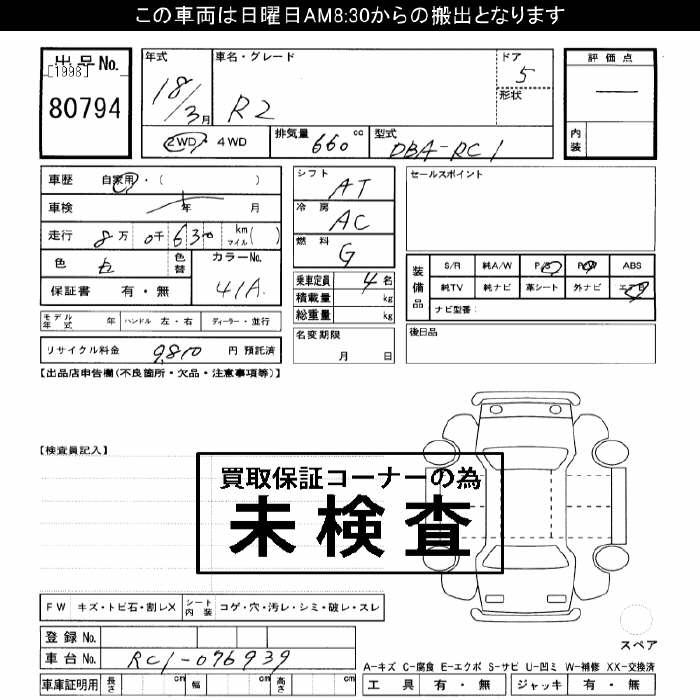 この車両は日曜日AM8:30からの搬出となります
出品No.
[1998]
80794
年式
18/3月
車名・グレード
R2
ドア
5
形状
評価点
—
内装
2WD・4WD
排気量 660 cc
型式 DBA-RC1
車歴 自家用・( )
車検 年 月
走行 8万 0千 630 km マイル( )
色 白 色替
カラーNo.
41A
保証書 有・無
シフト AT
冷房 AC
燃料 G
乗車定員 4名
積載量 kg
総重量 kg
名変期限
月 日
セールスポイント
装備品
S/R 純A/W P/S P/W ABS
純TV 純ナビ 革シート 外ナビ エアB
ナビ型番:
後日品
モデル年式 年 ハンドル 左・右 ディーラー・並行
リサイクル料金 9,810 円 預託済
【出品店申告欄(不良箇所・欠品・注意事項等)】
【検査員記入】
買取保証コーナーの為
未検査
FW キズ・トビ石・割レX シート内装 コゲ・穴・汚レ・シミ・破レ・スレ
登録No.
車台No. RC1-076939
車庫証明用 長さ cm 幅 cm 高さ cm
スペア
A-キズ C-腐食 E-エクボ S-サビ U-凹ミ W-補修 XX-交換済
工具 有・無 ジャッキ 有・無